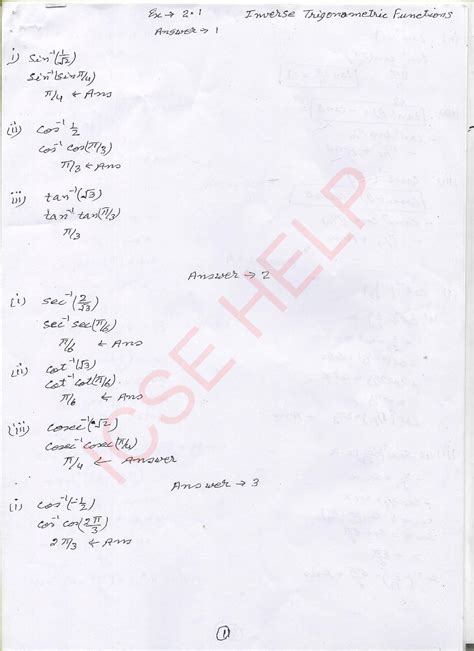 Ex → 2.1 Inverse Trigonometric Functions
Answer → 1
i) sin⁻¹(1/√2)
sin⁻¹(sin π/4)
π/4 ← Ans
(ii) cos⁻¹ 1/2
cos⁻¹ cos(π/3)
π/3 ← Ans
iii) tan⁻¹(√3)
tan⁻¹ tan(π/3)
π/3
Answer → 2
(i) sec⁻¹(2/√3)
sec⁻¹ sec(π/6)
π/6 ← Ans
(ii) cot⁻¹(√3)
cot⁻¹ cot(π/6).
π/6 ← Ans
(iii) cosec⁻¹(√2)
cosec⁻¹ cosec(π/4)
π/4 ← Answer
Answer → 3
(i) cos⁻¹(-1/2)
cos⁻¹ cos(2π/3)
2π/3 ← Ans
1
ICSE HELP